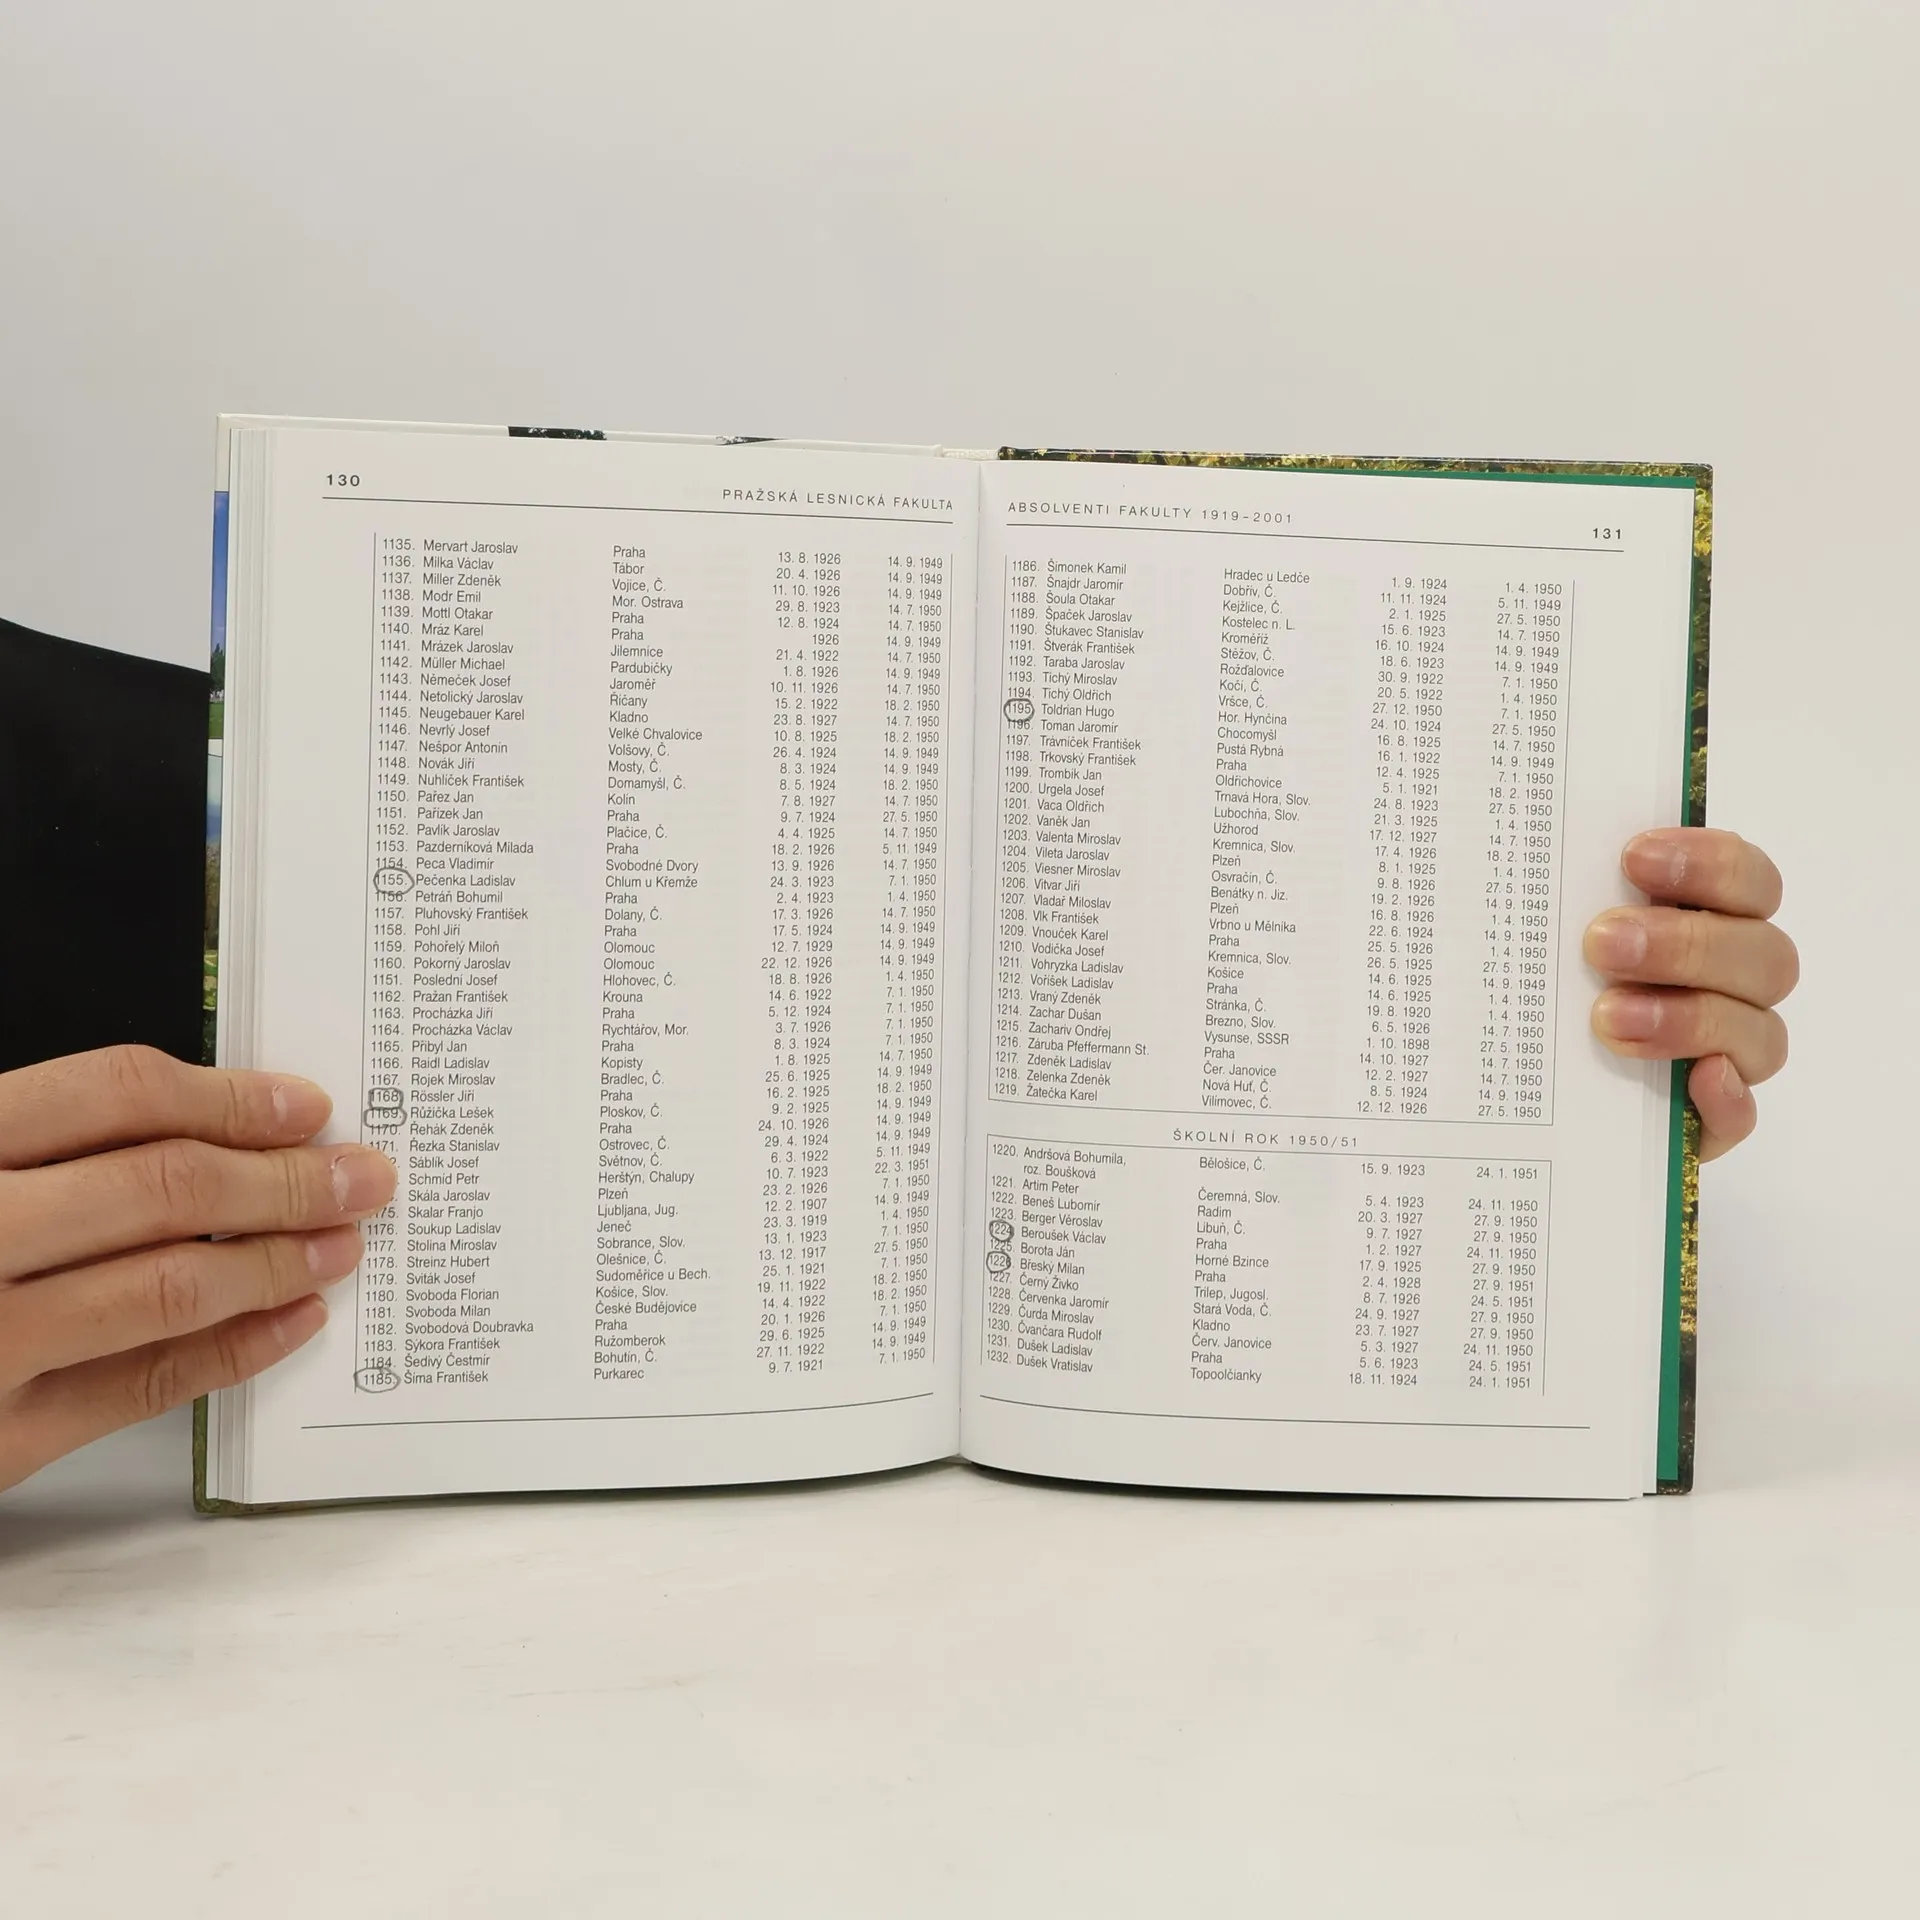 130
PRAŽSKÁ LESNICKÁ FAKULTA
1135. Mervart Jaroslav Praha 13. 8. 1926 14. 9. 1949
1136. Milka Václav Tábor 20. 4. 1926 14. 9. 1949
1137. Miller Zdeněk Vojice, Č. 11. 10. 1926 14. 9. 1949
1138. Modr Emil Mor. Ostrava 29. 8. 1923 14. 7. 1950
1139. Mottl Otakar Praha 12. 8. 1924 14. 7. 1950
1140. Mráz Karel Praha 1926 14. 9. 1949
1141. Mrázek Jaroslav Jilemnice 21. 4. 1922 14. 7. 1950
1142. Müller Michael Pardubičky 1. 8. 1926 14. 9. 1949
1143. Němeček Josef Jaroměř 10. 11. 1926 14. 7. 1950
1144. Netolický Jaroslav Říčany 15. 2. 1922 18. 2. 1950
1145. Neugebauer Karel Kladno 23. 8. 1927 14. 7. 1950
1146. Nevrlý Josef Velké Chvalovice 10. 8. 1925 18. 2. 1950
1147. Nešpor Antonín Volšovy, Č. 26. 4. 1924 14. 9. 1949
1148. Novák Jiří Mosty, Č. 8. 3. 1924 14. 9. 1949
1149. Nuhlíček František Domamyšl, Č. 8. 5. 1924 18. 2. 1950
1150. Pařez Jan Kolín 7. 8. 1927 14. 7. 1950
1151. Pařízek Jan Praha 9. 7. 1924 27. 5. 1950
1152. Pavlík Jaroslav Plačice, Č. 4. 4. 1925 14. 7. 1950
1153. Pazderníková Milada Praha 18. 2. 1926 5. 11. 1949
1154. Peca Vladimír Svobodné Dvory 13. 9. 1926 14. 7. 1950
1155. Pečenka Ladislav Chlum u Křemže 24. 3. 1923 7. 1. 1950
1156. Petráň Bohumil Praha 2. 4. 1923 1. 4. 1950
1157. Pluhovský František Dolany, Č. 17. 3. 1926 14. 7. 1950
1158. Pohl Jiří Praha 17. 5. 1924 14. 9. 1949
1159. Pohořelý Miloň Olomouc 12. 7. 1929 14. 9. 1949
1160. Pokorný Jaroslav Olomouc 22. 12. 1926 14. 9. 1949
1151. Poslední Josef Hlohovec, Č. 18. 8. 1926 1. 4. 1950
1162. Pražan František Krouna 14. 6. 1922 7. 1. 1950
1163. Procházka Jiří Praha 5. 12. 1924 7. 1. 1950
1164. Procházka Václav Rychtářov, Mor. 3. 7. 1926 7. 1. 1950
1165. Přibyl Jan Praha 8. 3. 1924 7. 1. 1950
1166. Raidl Ladislav Kopisty 1. 8. 1925 14. 7. 1950
1167. Rojek Miroslav Bradlec, Č. 25. 6. 1925 14. 9. 1949
1168. Rössler Jiří Praha 16. 2. 1925 18. 2. 1950
1169. Růžička Lešek Ploskov, Č. 9. 2. 1925 14. 9. 1949
1170. Řehák Zdeněk Praha 24. 10. 1926 14. 9. 1949
1171. Řezka Stanislav Ostrovec, Č. 29. 4. 1924 14. 9. 1949
2. Sáblík Josef Světnov, Č. 6. 3. 1922 5. 11. 1949
Schmid Petr Herštýn, Chalupy 10. 7. 1923 22. 3. 1951
Skála Jaroslav Plzeň 23. 2. 1926 7. 1. 1950
175. Skalar Franjo Ljubljana, Jug. 12. 2. 1907 14. 9. 1949
1176. Soukup Ladislav Jeneč 23. 3. 1919 1. 4. 1950
1177. Stolina Miroslav Sobrance, Slov. 13. 1. 1923 7. 1. 1950
1178. Streinz Hubert Olešnice, Č. 13. 12. 1917 27. 5. 1950
1179. Sviták Josef Sudoměřice u Bech. 25. 1. 1921 7. 1. 1950
1180. Svoboda Florian Košice, Slov. 19. 11. 1922 18. 2. 1950
1181. Svoboda Milan České Budějovice 14. 4. 1922 18. 2. 1950
1182. Svobodová Doubravka Praha 20. 1. 1926 7. 1. 1950
1183. Sýkora František Ružomberok 29. 6. 1925 14. 9. 1949
1184. Šedivý Čestmír Bohutín, Č. 27. 11. 1922 14. 9. 1949
1185. Šíma František Purkarec 9. 7. 1921 7. 1. 1950
ABSOLVENTI FAKULTY 1919–2001
131
1186. Šimonek Kamil Hradec u Ledče 1. 9. 1924 1. 4. 1950
1187. Šnajdr Jaromír Dobřív, Č. 11. 11. 1924 5. 11. 1949
1188. Šoula Otakar Kejžlice, Č. 2. 1. 1925 27. 5. 1950
1189. Špaček Jaroslav Kostelec n. L. 15. 6. 1923 14. 7. 1950
1190. Štukavec Stanislav Kroměříž 16. 10. 1924 14. 9. 1949
1191. Štverák František Stěžov, Č. 18. 6. 1923 14. 9. 1949
1192. Taraba Jaroslav Rožďalovice 30. 9. 1922 7. 1. 1950
1193. Tichý Miroslav Kočí, Č. 20. 5. 1922 1. 4. 1950
1194. Tichý Oldřich Vršce, Č. 27. 12. 1950 7. 1. 1950
1195. Toldrian Hugo Hor. Hynčina 24. 10. 1924 27. 5. 1950
1196. Toman Jaromír Chocomyšl 16. 8. 1925 14. 7. 1950
1197. Trávníček František Pustá Rybná 16. 1. 1922 14. 9. 1949
1198. Trkovský František Praha 12. 4. 1925 7. 1. 1950
1199. Trombik Jan Oldřichovice 5. 1. 1921 18. 2. 1950
1200. Urgela Josef Trnavá Hora, Slov. 24. 8. 1923 27. 5. 1950
1201. Vaca Oldřich Lubochňa, Slov. 21. 3. 1925 1. 4. 1950
1202. Vaněk Jan Užhorod 17. 12. 1927 14. 7. 1950
1203. Valenta Miroslav Kremnica, Slov. 17. 4. 1926 18. 2. 1950
1204. Vileta Jaroslav Plzeň 8. 1. 1925 1. 4. 1950
1205. Viesner Miroslav Osvračín, Č. 9. 8. 1926 27. 5. 1950
1206. Vitvar Jiří Benátky n. Jiz. 19. 2. 1926 14. 9. 1949
1207. Vladař Miloslav Plzeň 16. 8. 1926 1. 4. 1950
1208. Vlk František Vrbno u Mělníka 22. 6. 1924 14. 9. 1949
1209. Vnouček Karel Praha 25. 5. 1926 1. 4. 1950
1210. Vodička Josef Kremnica, Slov. 26. 5. 1925 27. 5. 1950
1211. Vohryzka Ladislav Košice 14. 6. 1925 14. 9. 1949
1212. Voříšek Ladislav Praha 14. 6. 1925 1. 4. 1950
1213. Vraný Zdeněk Stránka, Č. 19. 8. 1920 1. 4. 1950
1214. Zachar Dušan Brezno, Slov. 6. 5. 1926 14. 7. 1950
1215. Zachariv Ondřej Vysunse, SSSR 1. 10. 1898 27. 5. 1950
1216. Záruba Pfeffermann St. Praha 14. 10. 1927 14. 7. 1950
1217. Zdeněk Ladislav Čer. Janovice 12. 2. 1927 14. 7. 1950
1218. Zelenka Zdeněk Nová Huť, Č. 8. 5. 1924 14. 9. 1949
1219. Žatečka Karel Vilímovec, Č. 12. 12. 1926 27. 5. 1950
ŠKOLNÍ ROK 1950/51
1220. Andršová Bohumila, Bělošice, Č. 15. 9. 1923 24. 1. 1951
roz. Boušková
1221. Artim Peter Čeremná, Slov. 5. 4. 1923 24. 11. 1950
1222. Beneš Lubomír Radim 20. 3. 1927 27. 9. 1950
1223. Berger Věroslav Libuň, Č. 9. 7. 1927 27. 9. 1950
1224. Beroušek Václav Praha 1. 2. 1927 24. 11. 1950
1225. Borota Ján Horné Bzince 17. 9. 1925 27. 9. 1950
1226. Břeský Milan Praha 2. 4. 1928 27. 9. 1951
1227. Černý Živko Trilep, Jugosl. 8. 7. 1926 24. 5. 1951
1228. Červenka Jaromír Stará Voda, Č. 24. 9. 1927 27. 9. 1950
1229. Čurda Miroslav Kladno 23. 7. 1927 27. 9. 1950
1230. Čvančara Rudolf Červ. Janovice 5. 3. 1927 24. 11. 1950
1231. Dušek Ladislav Praha 5. 6. 1923 24. 5. 1951
1232. Dušek Vratislav Topoolčianky 18. 11. 1924 24. 1. 1951